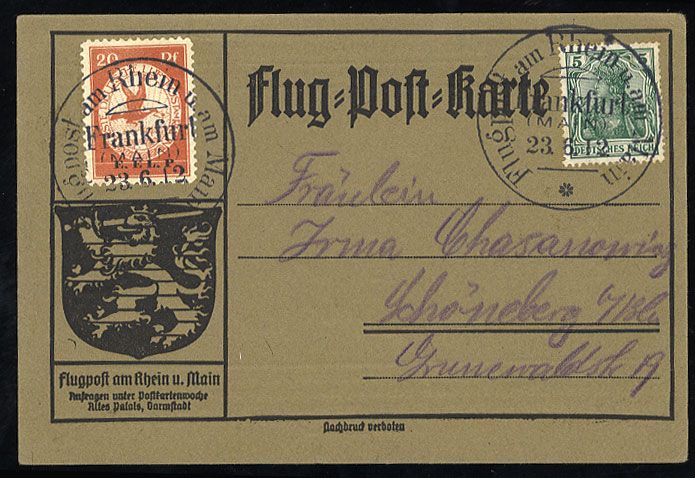 20 Pf
E.EL.P.
Flugpost am Rhein u. am Main
Frankfurt
(MAIN)
23.6.12
Flug-Post-Karte
5
DEUTSCHES REICH
Flugpost am Rhein u. am Main
Frankfurt
(MAIN)
23.6.12
Fräulein
Irma Chasanowicz
Schöneberg b/Bln
Grunewaldstr 19
Flugpost am Rhein u. Main
Anfragen unter Postkartenwoche
Altes Palais, Darmstadt
Nachdruck verboten